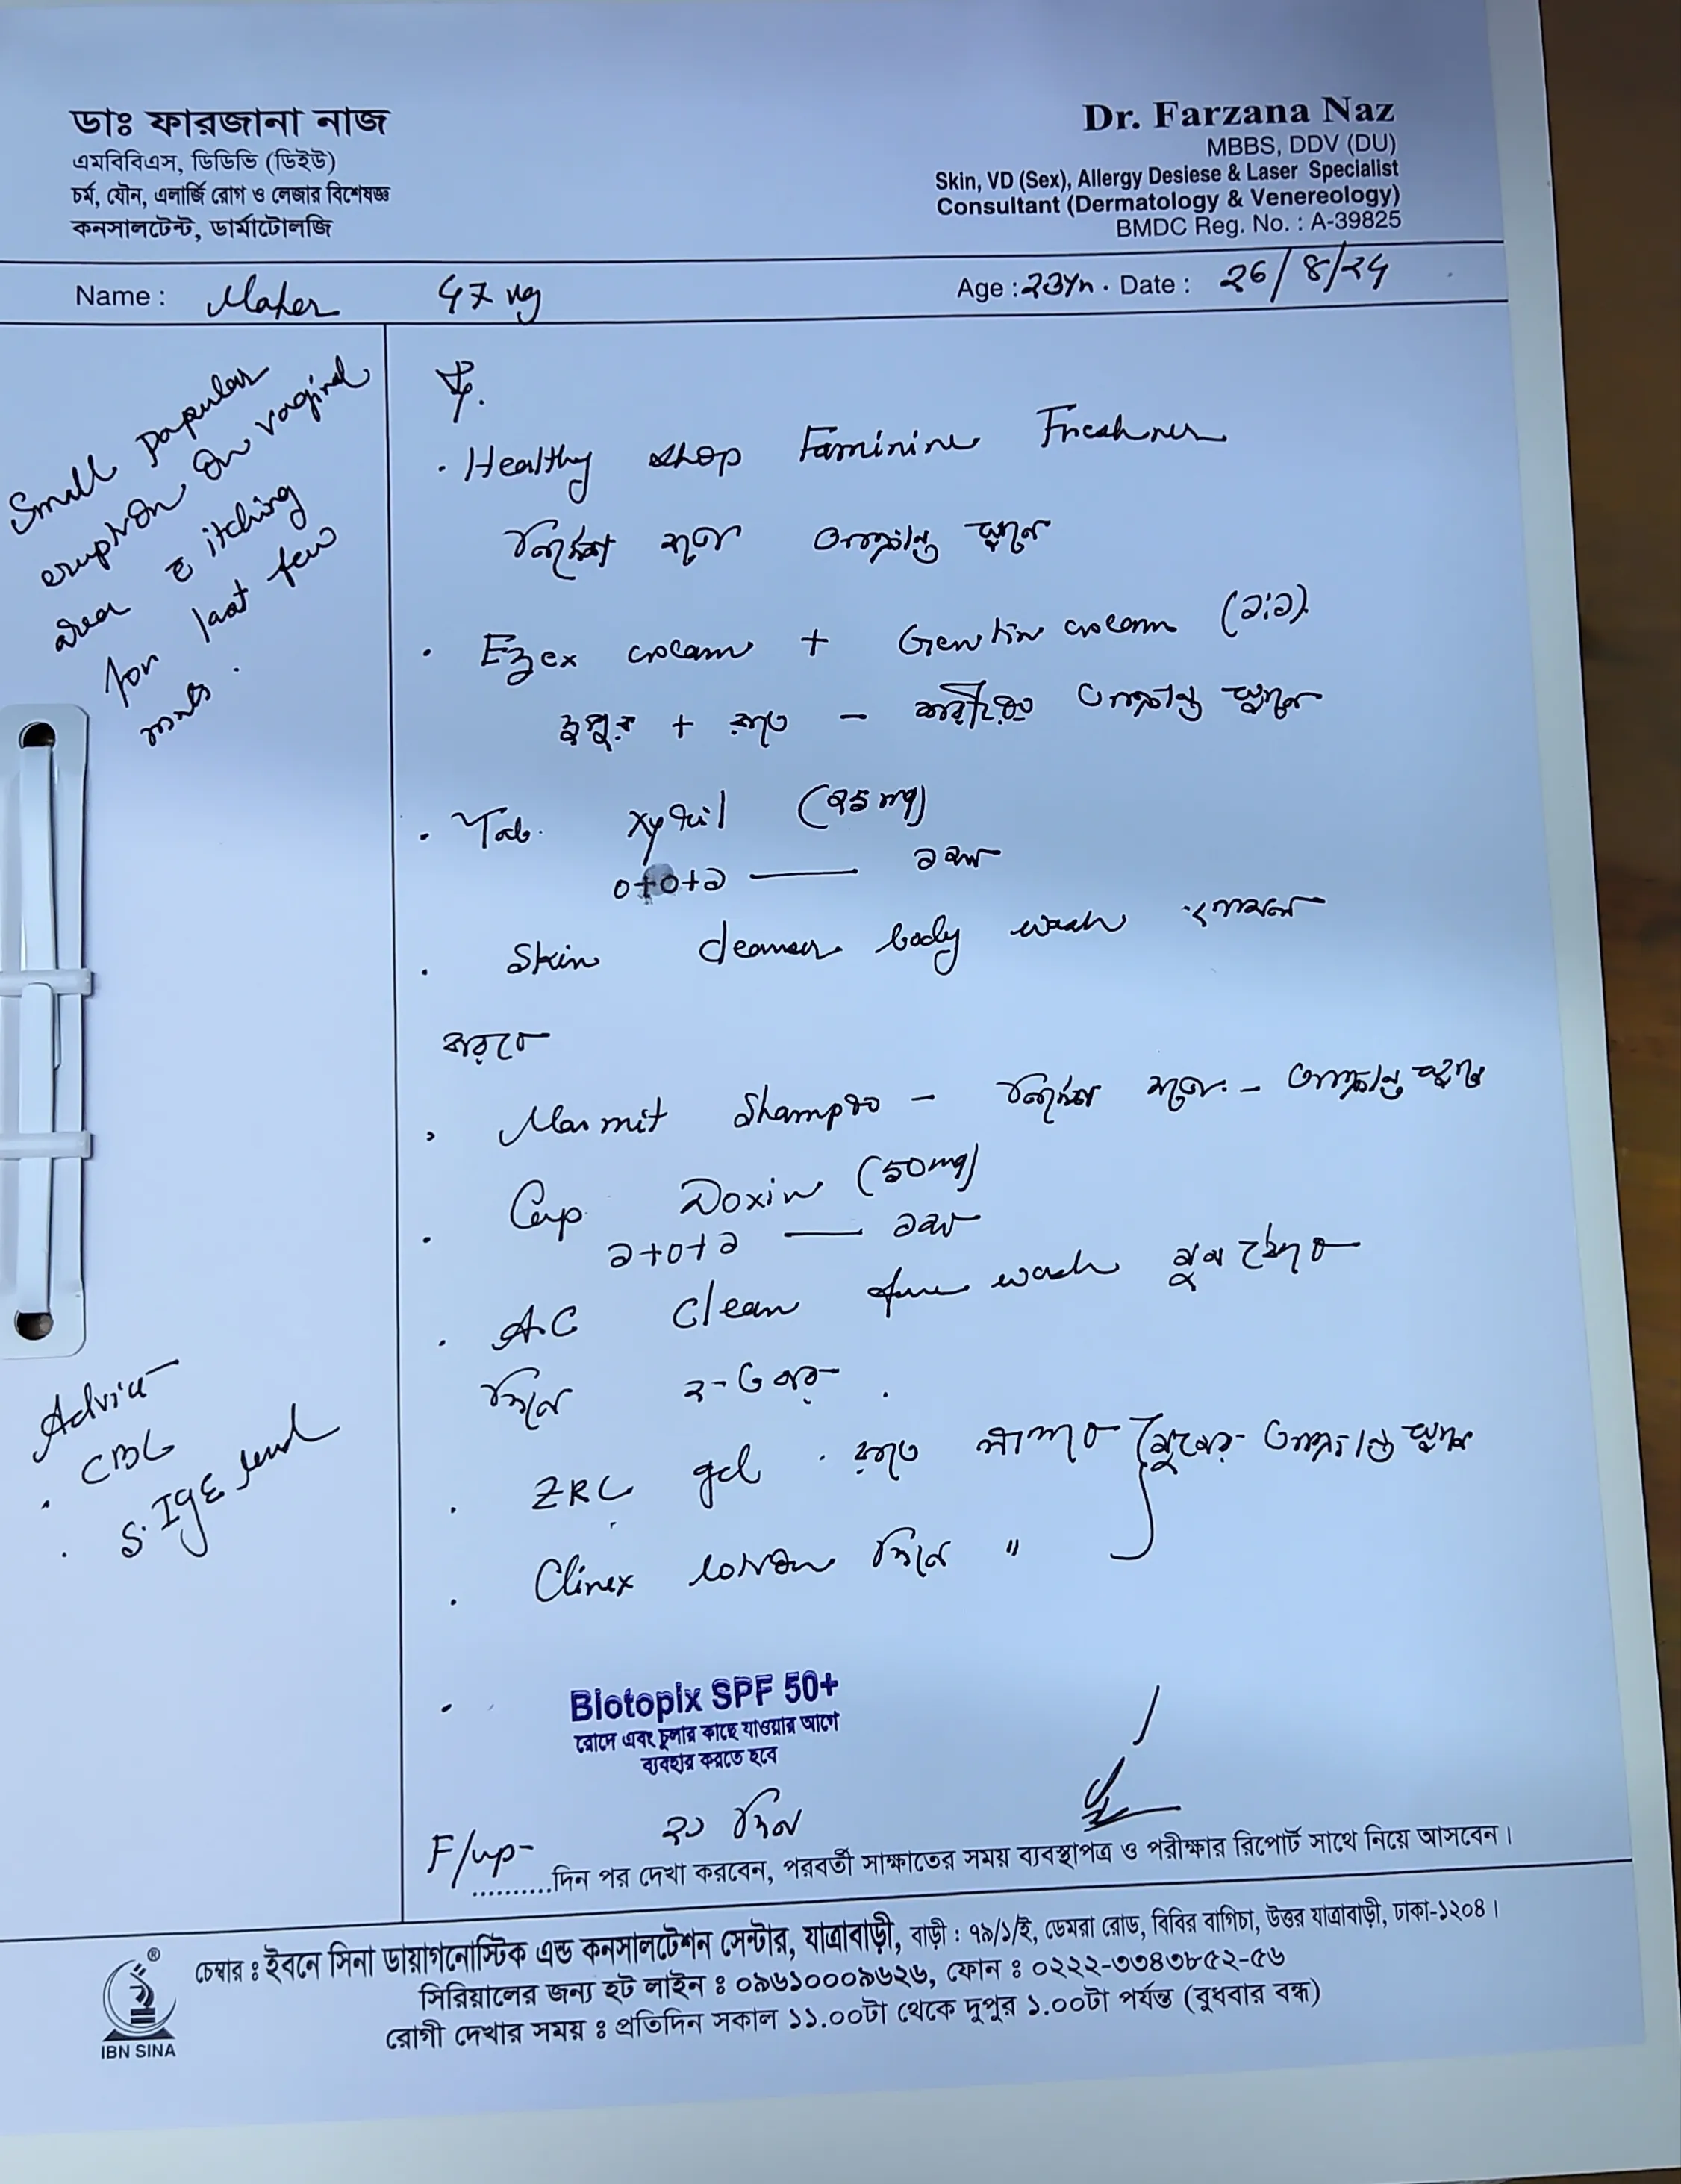 ডাঃ ফারজানা নাজ
এমবিবিএস, ডিডিভি (ডিইউ)
চর্ম, যৌন, এলার্জি রোগ ও লেজার বিশেষজ্ঞ
কনসালটেন্ট, ডার্মাটোলজি
Dr. Farzana Naz
MBBS, DDV (DU)
Skin, VD (Sex), Allergy Desiese & Laser Specialist
Consultant (Dermatology & Venereology)
BMDC Reg. No. : A-39825
Name : 47 kg Age : 23yn. Date : 26/8/24
Small papular
eruption on vaginal
area c itching
for last few
Advice
CBC
S. IgE
• Healthy shop Feminine
আক্রান্ত স্থানে
• Ezex cream + Gentin cream (১:১)
দুপুর + রাত - শরীরের আক্রান্ত স্থানে
• Tab. (25 mg)
0+0+১ — ১ মাস
• Skin cleanser body wash গোসল
করবে
• shampoo - আক্রান্ত স্থানে
• Cap. Doxin (50mg)
১+0+১ — ১মাস
• AC clean face wash
দিনে ২-৩ বার
• ZRC gel . রাতে আক্রান্ত স্থানে
• Clinex lotion দিনে "
• Biotopix SPF 50+
রোদে এবং চুলার কাছে যাওয়ার আগে
ব্যবহার করতে হবে
F/up- ২১ দিন
..........দিন পর দেখা করবেন, পরবর্তী সাক্ষাতের সময় ব্যবস্থাপত্র ও পরীক্ষার রিপোর্ট সাথে নিয়ে আসবেন।
চেম্বার : ইবনে সিনা ডায়াগনোস্টিক এন্ড কনসালটেশন সেন্টার, যাত্রাবাড়ী, বাড়ী : ৭৯/১/ই, ডেমরা রোড, বিবির বাগিচা, উত্তর যাত্রাবাড়ী, ঢাকা-১২০৪।
সিরিয়ালের জন্য হট লাইন : ০৯৬১০০০৯৬২৬, ফোন : ০২২২-৩৩৪৩৮৫২-৫৬
রোগী দেখার সময় : প্রতিদিন সকাল ১১.০০টা থেকে দুপুর ১.০০টা পর্যন্ত (বুধবার বন্ধ)
IBN SINA